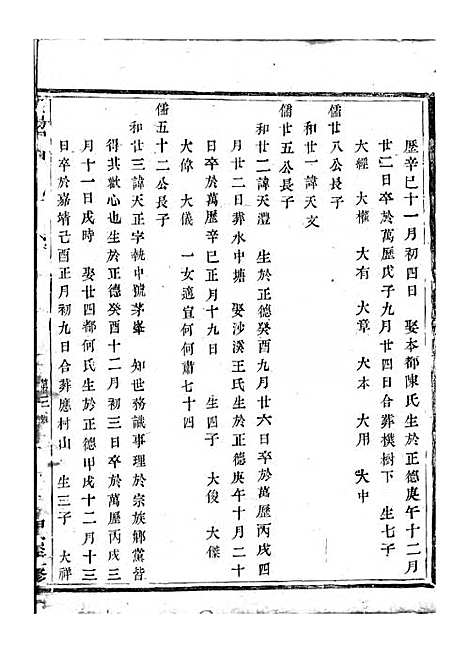 歷辛巳十一月初四日　娶本都陳氏生於正德庚午十二月
廿二日卒於萬歷戊子九月廿四日合葬樸樹下　生七子
大經　大權　大有　大章　大本　大用　大中
儒廿八公長子
和廿一諱天文
儒廿五公長子
和廿二諱天澧　生於正德癸酉九月廿六日卒於萬歷丙戌四
月廿二日葬水中塘　娶沙溪王氏生於正德庚午十月二十
日卒於萬歷辛巳正月十九日　生四子　大俊　大傑
大偉　大儀　一女適宜何何肅七十四
儒五十二公長子
和廿三諱天正字執中號茅峯　知世務識事理於宗族鄉黨皆
得其歡心也生於正德癸酉十二月初三日卒於萬歷丙午四
月十一日戌時　娶廿四都何氏生於正德甲戌十二月十三
日卒於嘉靖己酉正月初九日合葬應村山　生三子　大祥